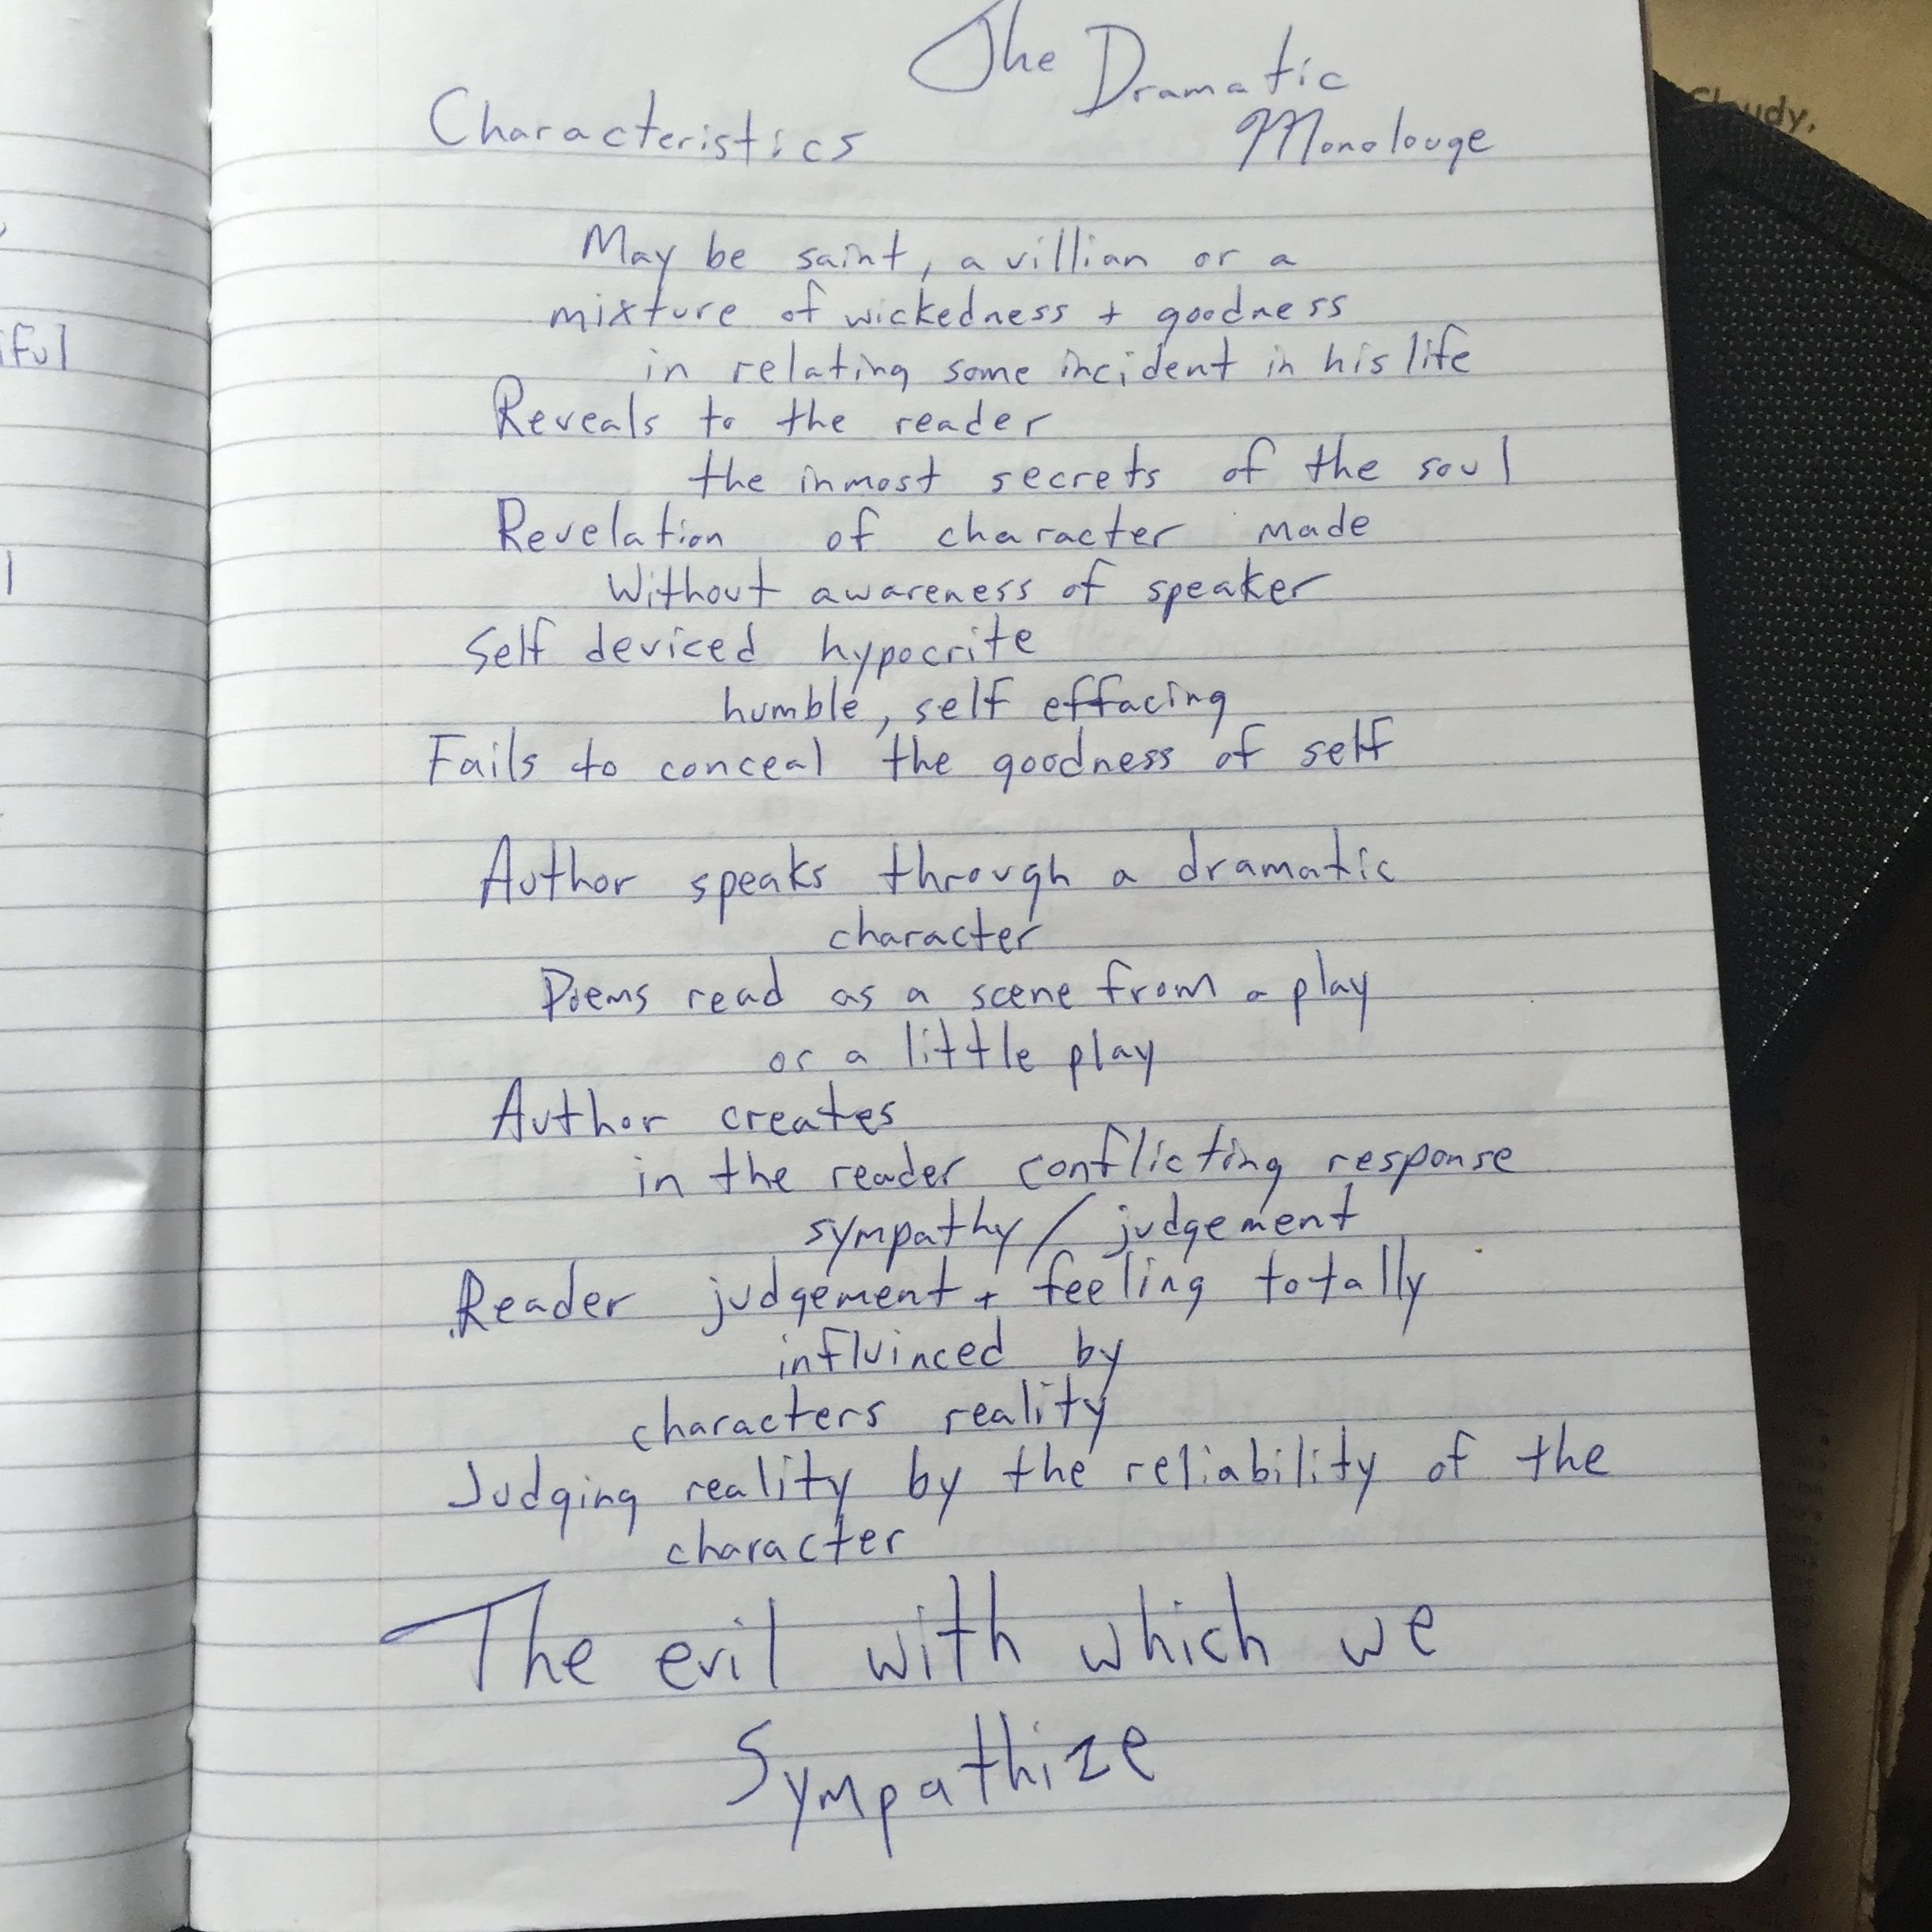 The Dramatic
Monolouge
Characteristics
May be saint, a villian or a
mixture of wickedness + goodness
in relating some incident in his life
Reveals to the reader
the inmost secrets of the soul
Revelation of character made
Without awareness of speaker
Self deviced hypocrite
humble, self effacing
Fails to conceal the goodness of self
Author speaks through a dramatic
character
Poems read as a scene from a play
or a little play
Author creates
in the reader conflicting response
sympathy / judgement
Reader judgement + feeling totally
influinced by
characters reality
Judging reality by the reliability of the
character
The evil with which we
Sympathize
iful